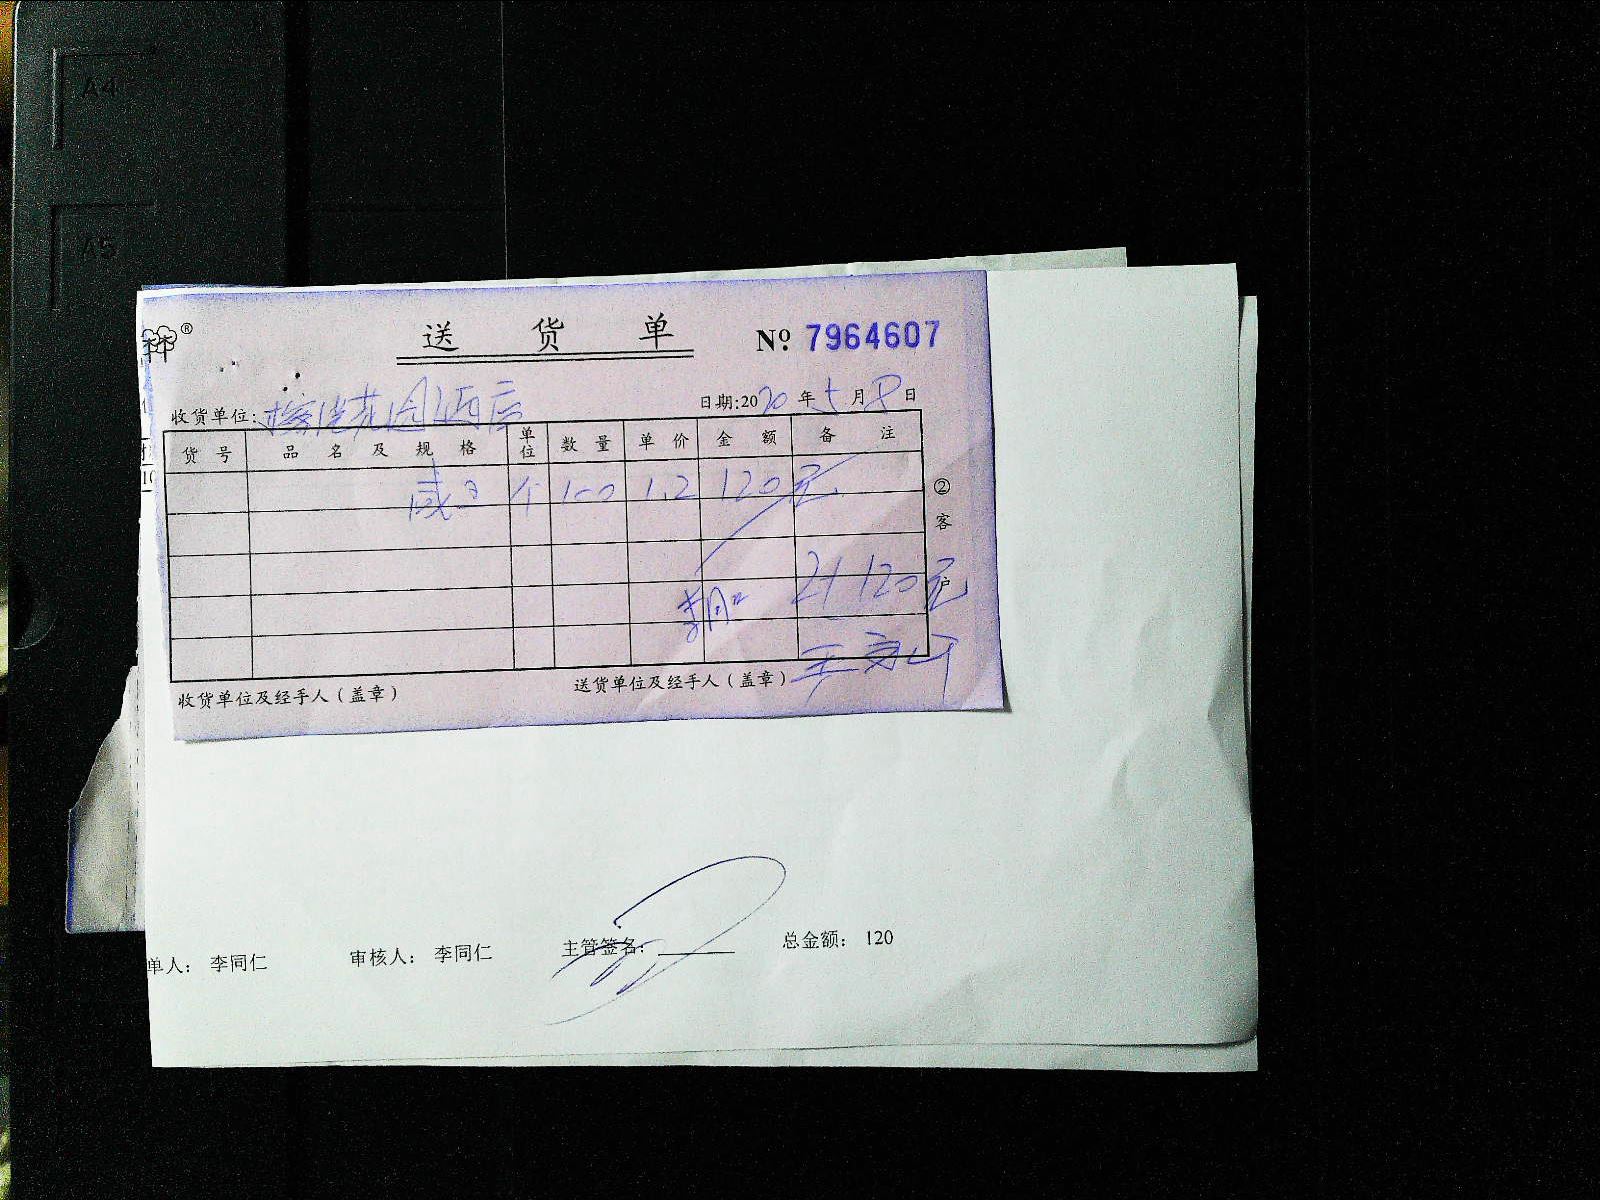 A4
A5
®
送货单
Nº 7964607
收货单位: 花园酒店
日期:2020年5月8日
货号 品名及规格 单位 数量 单价 金额 备注
咸 个 100 1.2 120元
② 客户
李同仁
120元
收货单位及经手人（盖章） 送货单位及经手人（盖章）
单人： 李同仁 审核人： 李同仁 主管签名: 总金额： 120